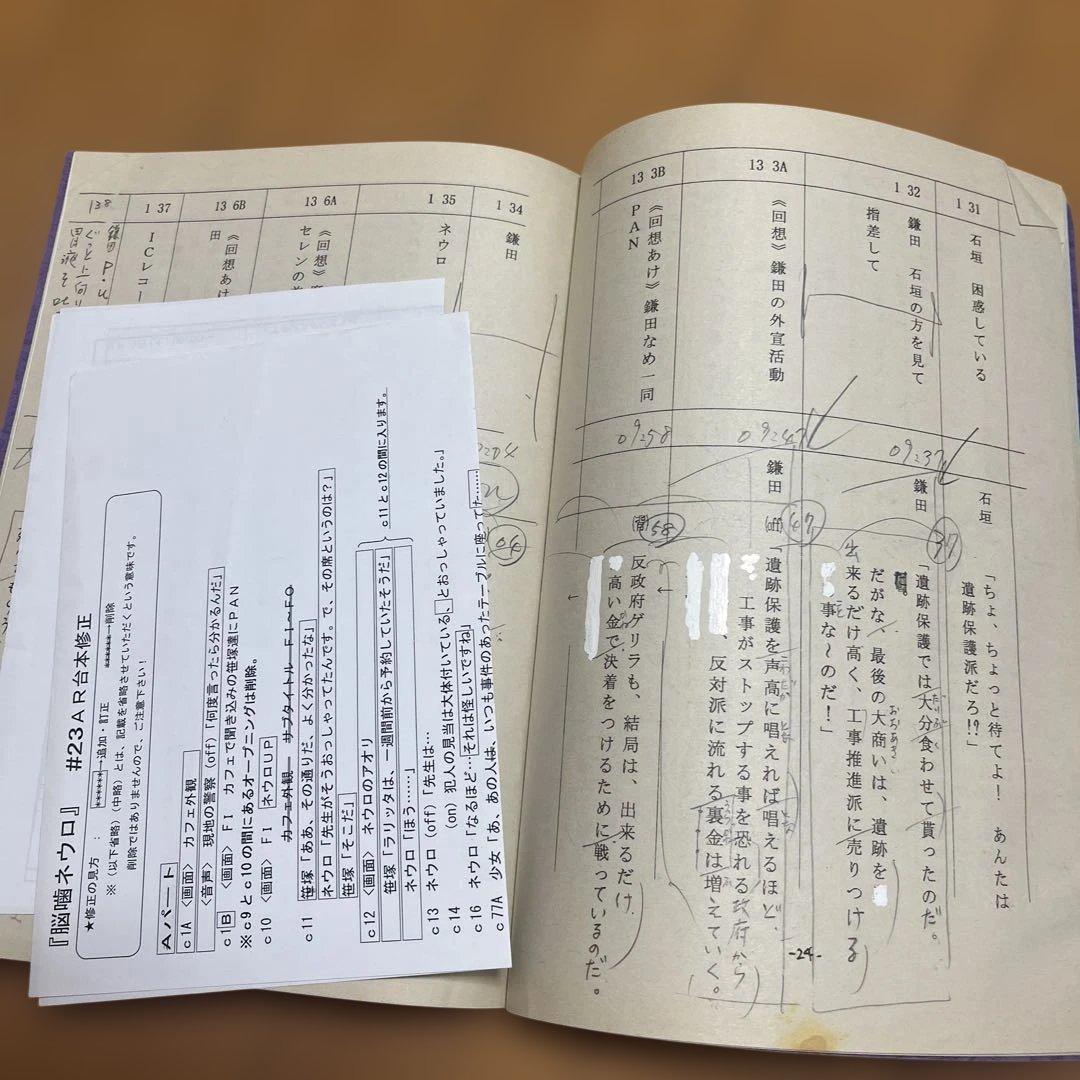 131
石垣 困惑している
石垣
「ちょ、ちょっと待てよ! あんたは
遺跡保護派だろ!?」
132
鎌田 石垣の方を見て
指差して
09:37
37
鎌田
「遺跡保護では大分食わせて貰ったのだ。
だがな、最後の大商いは、遺跡を
出来るだけ高く、工事推進派に売りつける
事な~のだ!」
133A
《回想》鎌田の外宣活動
09:47
47
鎌田(off)
「遺跡保護を声高に唱えれば唱えるほど、
工事がストップする事を恐れる政府から
、反対派に流れる裏金は増えていく。
133B
《回想あけ》鎌田なめ一同
PAN
09:58
58
(背)
反政府ゲリラも、結局は、出来るだけ
高い金で決着をつけるために戦っているのだ。
-24-
134
鎌田
04
135
ネウロ
136A
《回想》
セレンの
136B
《回想あけ》
田
137
ICレコー
138
鎌田P.U
『脳噛ネウロ』 #23AR台本修正
★修正の見方 : ******→追加・訂正 ******→削除
※(以下省略)(中略)とは、記載を省略させていただくという意味です。
削除ではありませんので、ご注意下さい!
Aパート
c1A 〈画面〉カフェ外観
〈音声〉現地の警察(off)「何度言ったら分かるんだ」
c1B 〈画面〉FI カフェで聞き込みの笹塚達にPAN
※c9とc10の間にあるオープニングは削除。
c10 〈画面〉FI ネウロUP
カフェ外観 サブタイトル FI~FO
c11 笹塚「ああ、その通りだ、よく分かったな」
ネウロ「先生がそうおっしゃってたんです。で、その席というのは?」
笹塚「そこだ」
c12 〈画面〉ネウロのアオリ
笹塚「ラリッタは、一週間前から予約していたそうだ」
ネウロ「ほう……」
c11とc12の間に入ります。
c13 ネウロ(off)「先生は…
c14 (on)犯人の見当は大体付いている、とおっしゃっていました。」
c16 ネウロ「なるほど…それは怪しいですね」
c77A 少女「あ、あの人は、いつも事件のあったテーブルに座ってた……